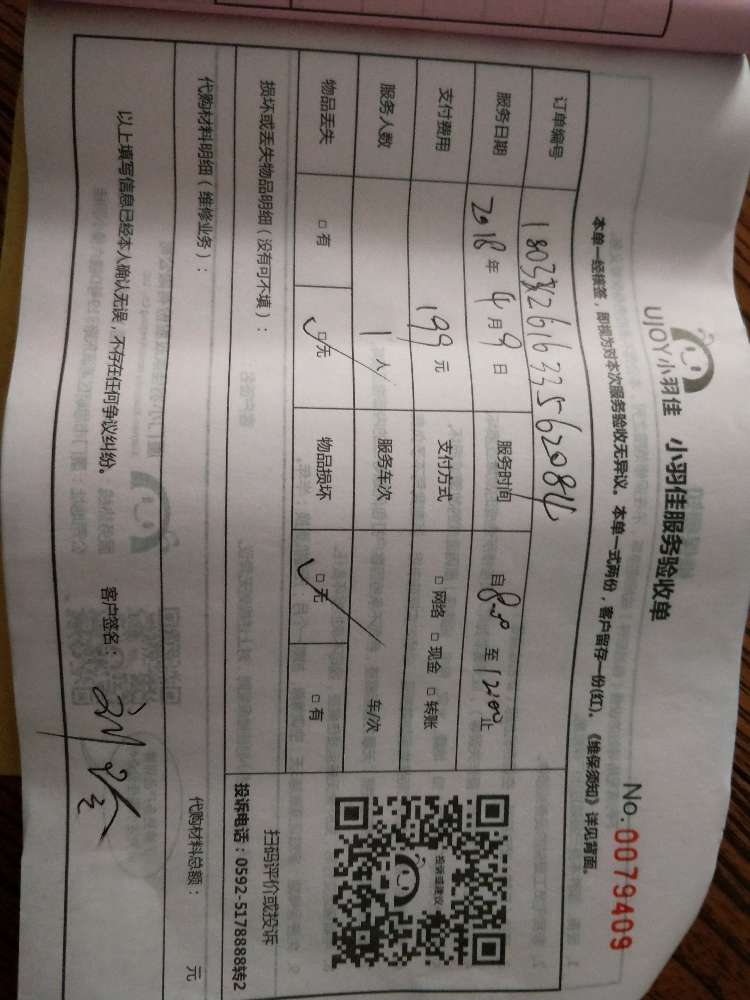 UJOY小羽佳 小羽佳服务验收单
No.0079409
本单一经接签，即视为对本次服务验收无异议。本单一式两份，客户留存一份(红)。《维保须知》详见背面。
订单编号
服务日期 2018年4月9日 服务时间 自8:00至12:00止
支付费用 199元 支付方式 □网络 □现金 □转账
服务人数 1人 服务车次 车/次
物品丢失 □有 □无 物品损坏 □无 □有
投诉或建议
扫码评价或投诉
投诉电话：0592-5178888转2
损坏或丢失物品明细（没有可不填）：
代购材料明细（维修业务）： 代购材料总额： 元
以上填写信息已经本人确认无误，不存在任何争议纠纷。 客户签名：